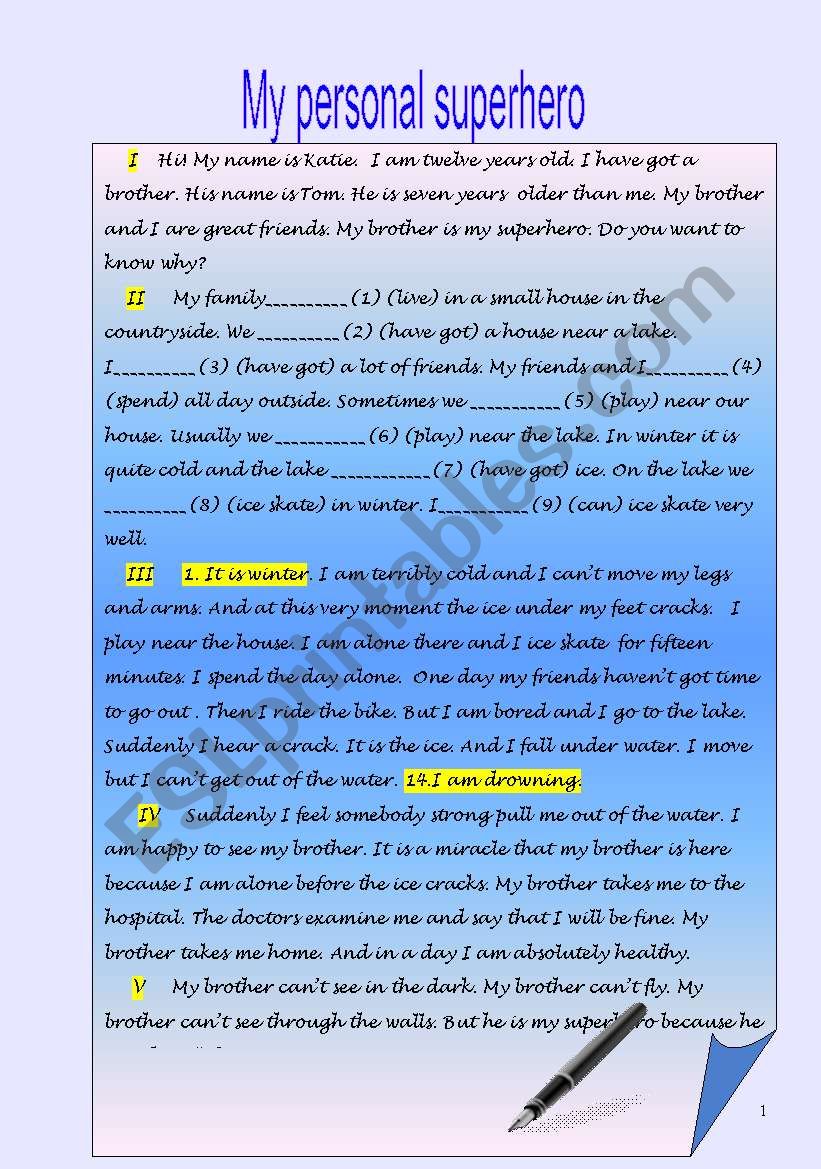 My personal superhero
I Hi! My name is Katie. I am twelve years old. I have got a
brother. His name is Tom. He is seven years older than me. My brother
and I are great friends. My brother is my superhero. Do you want to
know why?
II My family__________(1) (live) in a small house in the
countryside. We __________(2) (have got) a house near a lake.
I__________(3) (have got) a lot of friends. My friends and I__________(4)
(spend) all day outside. Sometimes we ___________(5) (play) near our
house. Usually we ___________(6) (play) near the lake. In winter it is
quite cold and the lake ____________(7) (have got) ice. On the lake we
__________(8) (ice skate) in winter. I___________(9) (can) ice skate very
well.
III 1. It is winter. I am terribly cold and I can't move my legs
and arms. And at this very moment the ice under my feet cracks. I
play near the house. I am alone there and I ice skate for fifteen
minutes. I spend the day alone. One day my friends haven't got time
to go out . Then I ride the bike. But I am bored and I go to the lake.
Suddenly I hear a crack. It is the ice. And I fall under water. I move
but I can't get out of the water. 14.I am drowning.
IV Suddenly I feel somebody strong pull me out of the water. I
am happy to see my brother. It is a miracle that my brother is here
because I am alone before the ice cracks. My brother takes me to the
hospital. The doctors examine me and say that I will be fine. My
brother takes me home. And in a day I am absolutely healthy.
V My brother can't see in the dark. My brother can't fly. My
brother can't see through the walls. But he is my superhero because he
1
ESLprintables.com